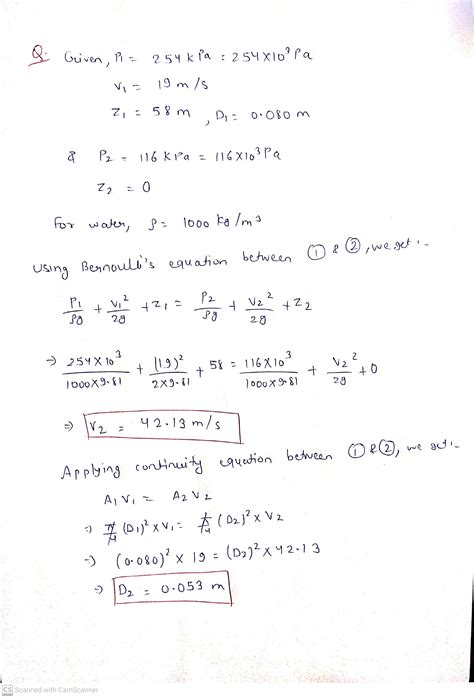 Q. Given, P₁ = 254 kPa = 254×10³ Pa
V₁ = 19 m/s
Z₁ = 58 m , D₁ = 0.080 m
& P₂ = 116 KPa = 116×10³ Pa
Z₂ = 0
For water, ρ = 1000 kg/m³
Using Bernoulli's equation between ① & ②, we get :-
P₁/ρg + V₁²/2g + Z₁ = P₂/ρg + V₂²/2g + Z₂
⇒ 254×10³/1000×9.81 + (19)²/2×9.81 + 58 = 116×10³/1000×9.81 + V₂²/2g + 0
⇒ V₂ = 42.13 m/s
Applying continuity equation between ① & ②, we get :-
A₁V₁ = A₂V₂
⇒ π/4 (D₁)² × V₁ = π/4 (D₂)² × V₂
⇒ (0.080)² × 19 = (D₂)² × 42.13
⇒ D₂ = 0.053 m
CS Scanned with CamScanner